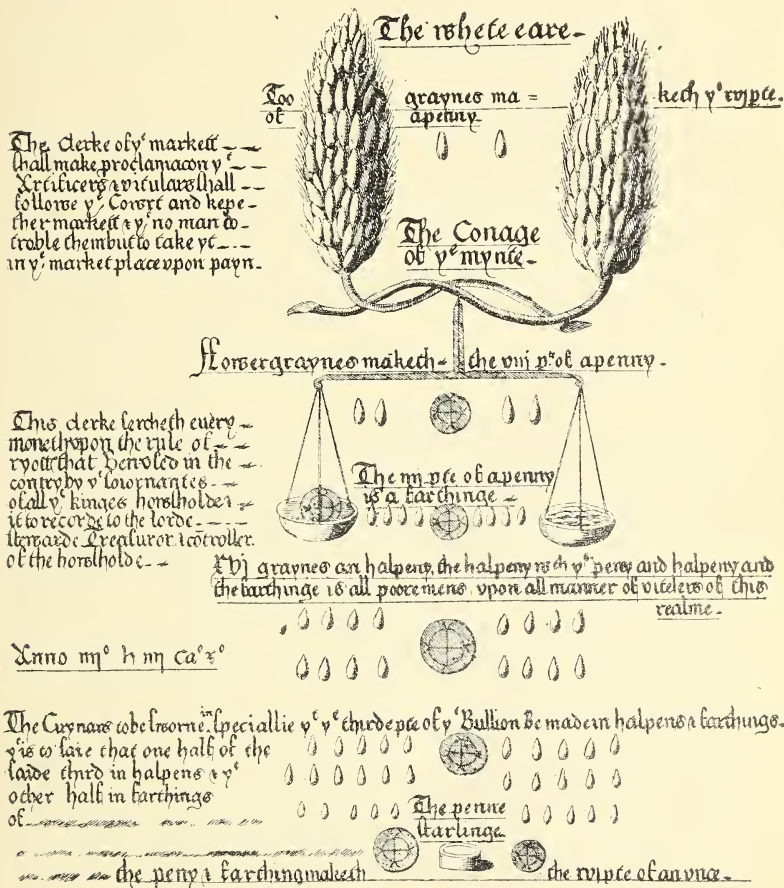 The whete eare
Too graynes ma = keth yᵉ xvj pte
of apenny
The clerke of yᵉ markett
shall make proclamacon yᵗ
Artificers & vitulars shall
followe yᵉ Cowrt and kepe
ther markett & yᵗ no man do
troble them but to take yt
in yᵉ market place vpon payn
The Conage
of yᵉ mynte
ffower graynes maketh the viij pt of apenny
This clerke sercheth euery
moneth vpon the rule of
that vsed in the
contry by yᵉ
of all yᵉ kinges howsholde &
it to recorde to the lorde
stewarde Treasuror & cōtroller
of the howsholde
The iiij pte of apenny
is a farthinge
xvj graynes an halpeny, the halpeny wᵗʰ yᵉ peny and halpeny and
the farthinge is all poore mens vpon all manner of vitelers of this
realme
Anno
The Cuynars to be sworne in speciallie yᵗ yᵉ thirde pte of yᵉ Bullion be made in halpens & farthings
yᵗ is to saie that one half of the
saide third in halpens & yᵉ
other half in farthings
of
The penne
starlinge
the peny & farthing maketh the xvj pte of an vnce